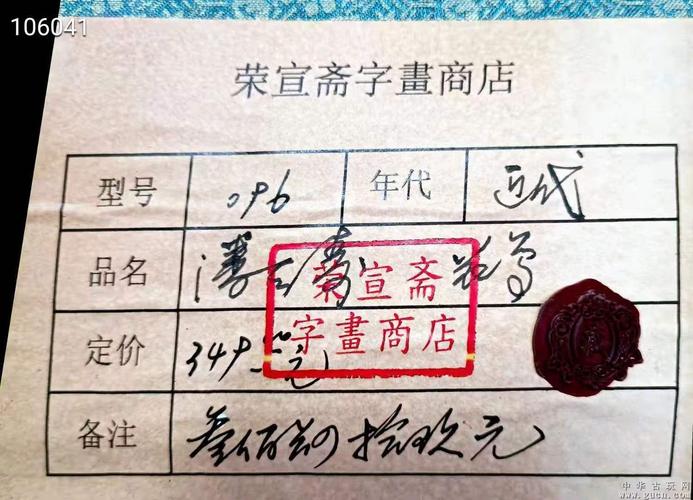 106041
荣宣斋字畫商店
型号 096 年代 近代
品名
荣宣斋
字畫商店
定价 349 元
备注 叁佰肆拾玖元
中华古玩网
www.gucn.com